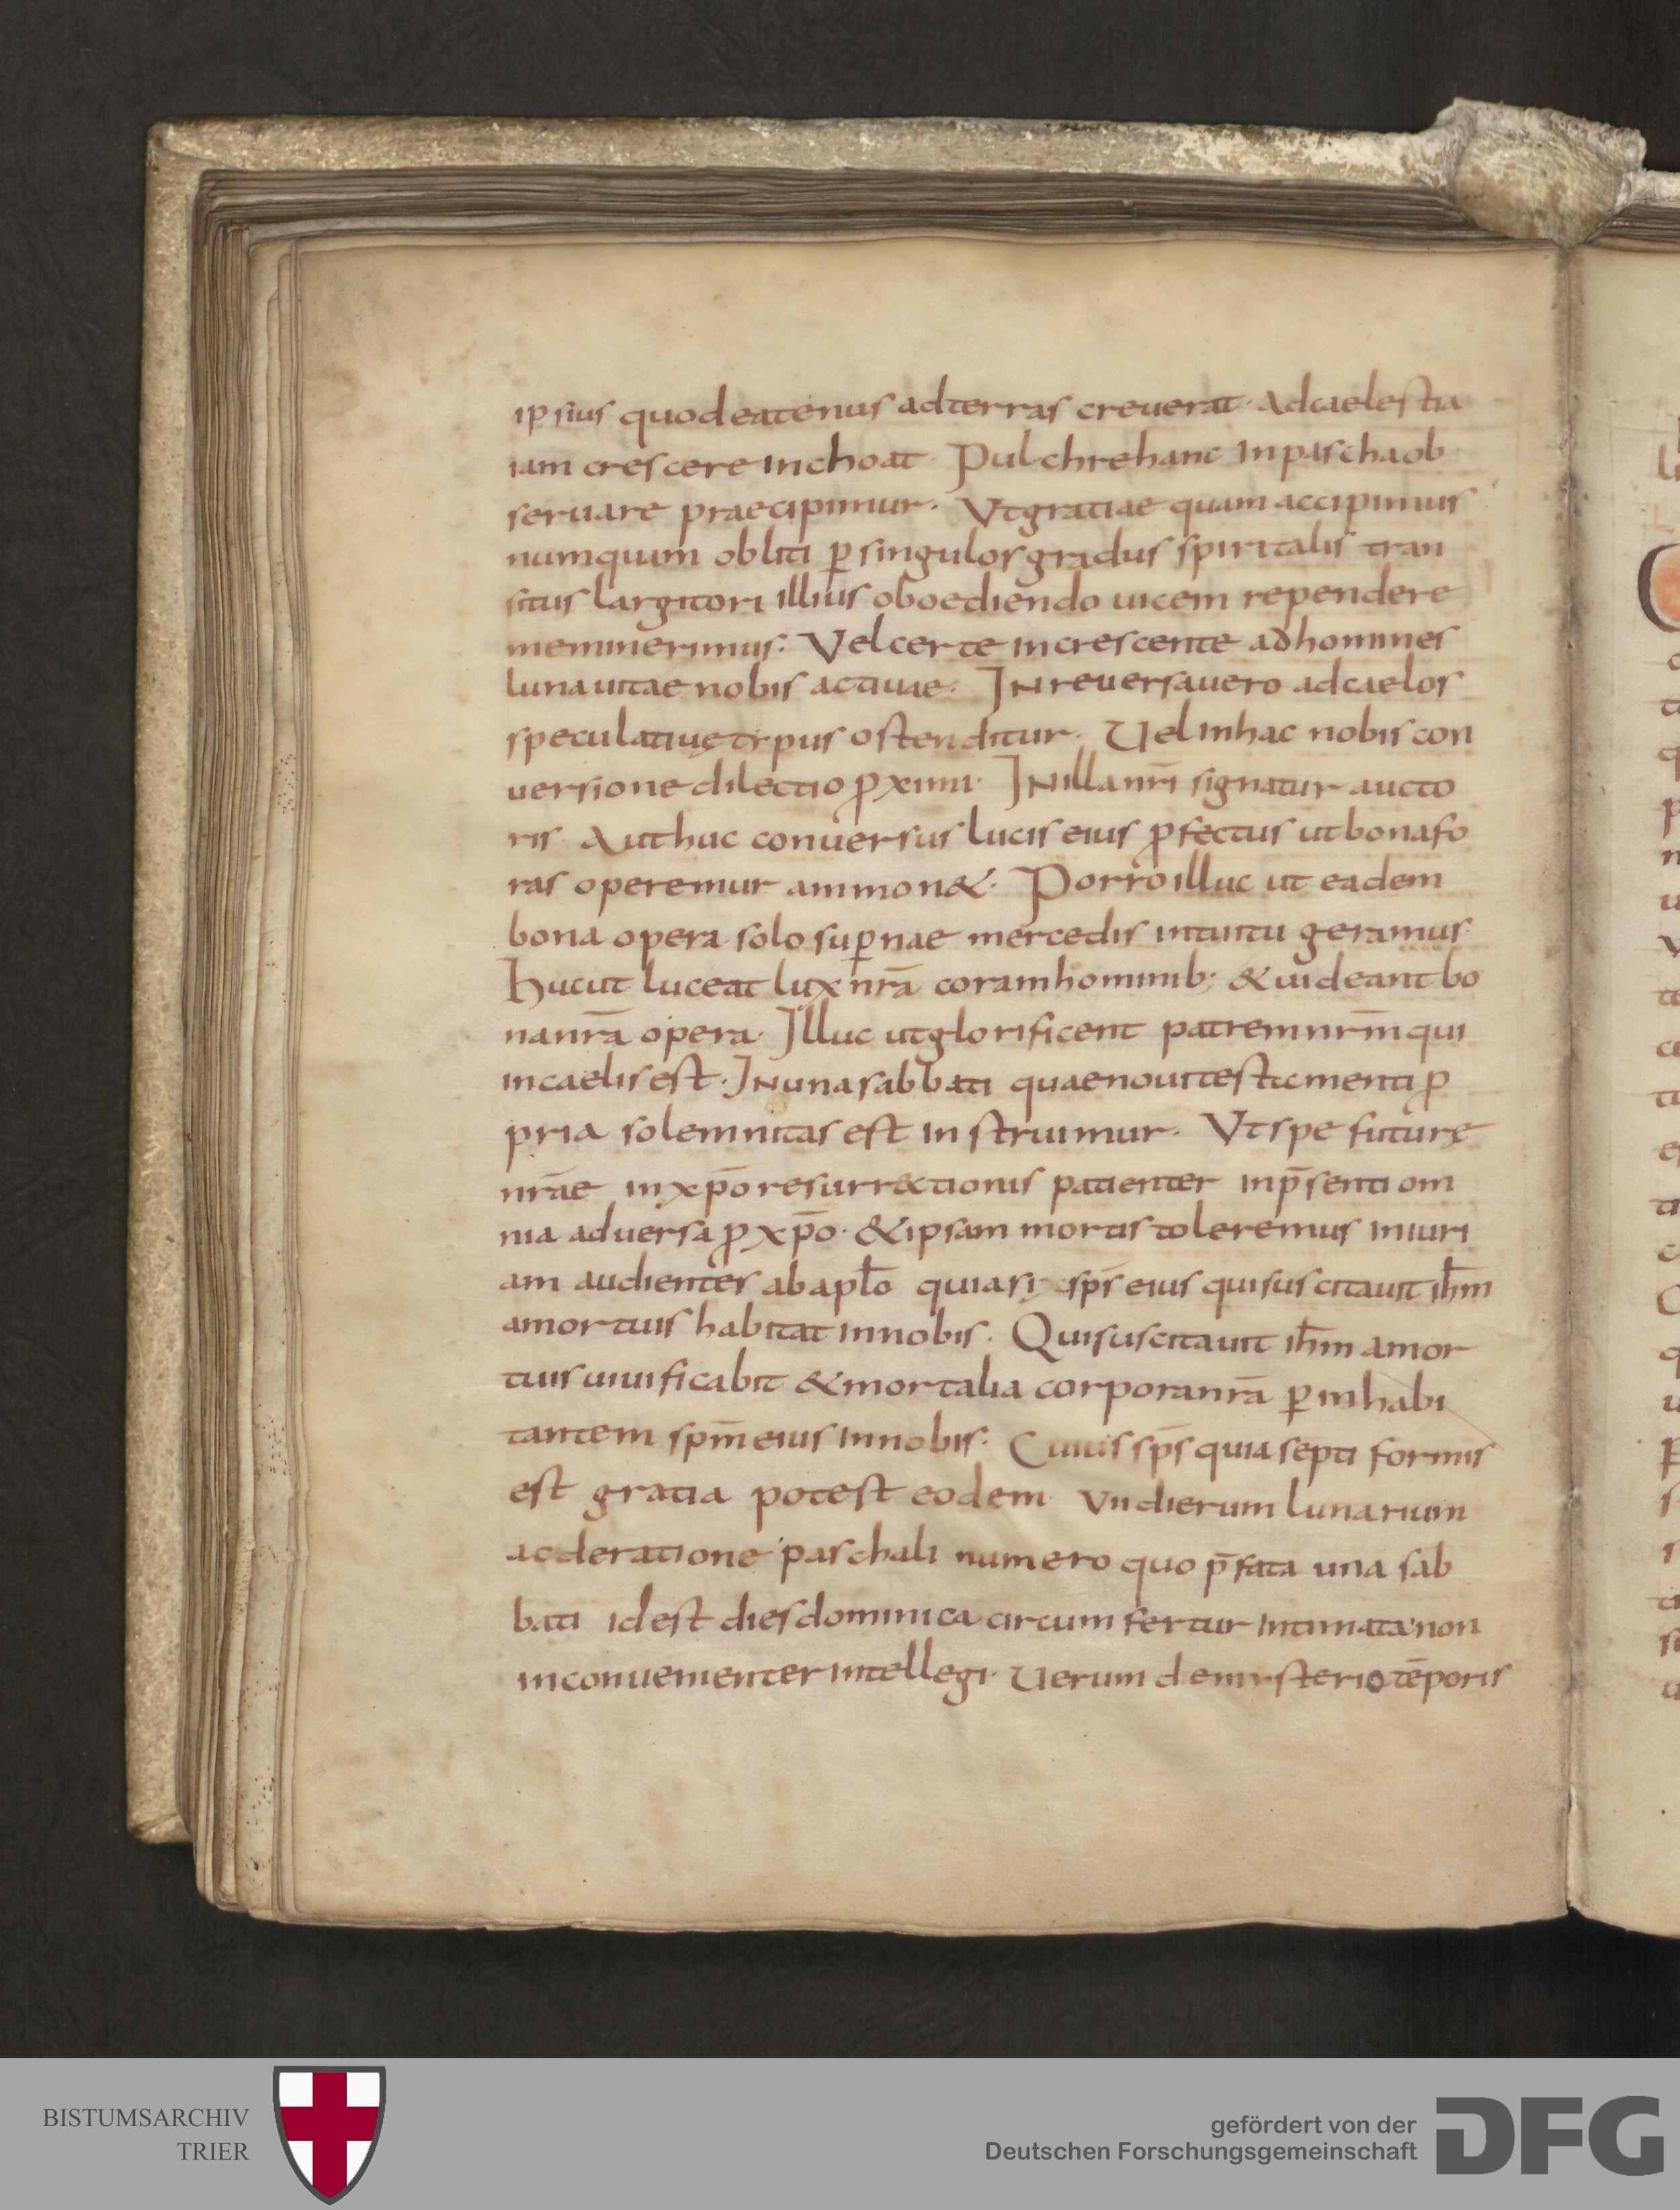 ipsius quod eatenus ad terras creuerat· Ad caelestia
iam crescere inchoat· Pulchre hanc in pascha ob
seruare praecipimur· Vt gratiae quam accipimus
numquam obliti ꝑ singulos gradus spiritalis tran
situs largitori illius oboediendo uicem rependere
meminerimus· Vel certe in crescente ad homines
luna uitae nobis actiuae· IN reuersa uero ad caelos
speculatiuę tẏpus ostenditur· Uel in hac nobis con
uersione dilectio ꝓximi· IN illa nr̄i signatur aucto
ris· Aut huc conuersus lucis eius ꝓfectus ut bona fo
ras operemur ammon&· Porro illuc ut eadem
bona opera solo suꝑnae mercedis intuitu geramus·
Huc ut luceat lux nr̄a coram hominib; & uideant bo
na nr̄a opera· Illuc ut glorificent patrem nr̄m qui
in caelis est· IN una sabbati quae noui testamenti ꝓ
pria solemnitas est instruimur· Vt spe futurę
nr̄ae in xp̄o resurr&ctionis patienter in p̄senti om
nia aduersa ꝓ xp̄o· & ipsam mortis toleremus iniuri
am audientes ab apl̄o quia si sp̄s eius qui suscitauit ih̄m
a mortuis habitat in nobis· Qui suscitauit ih̄m a mor
tuis uiuificabit & mortalia corpora nr̄a ꝑ inhabi
tantem sp̄m eius in nobis· Cuius sp̄s quia septiformis
est gratia potest eodem VII dierum lunarium
ac de ratione paschali numero quo p̄fata una sab
bati id est dies dominica circumfertur intimata non
inconuenienter intellegi· Uerum de misterio tēporis
BISTUMSARCHIV
TRIER
gefördert von der
Deutschen Forschungsgemeinschaft
DFG